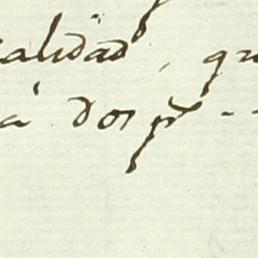 alidad, qu
a dos p.r --